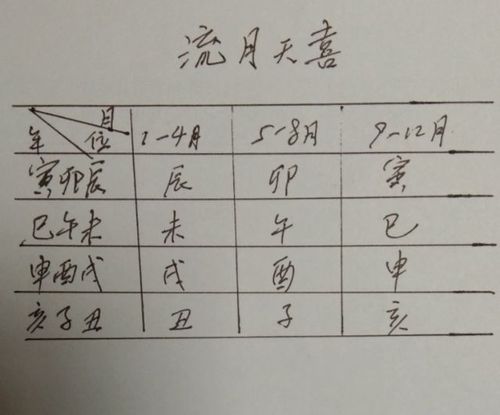 流月天喜
月
年 位 1-4月 5-8月 9-12月
寅卯辰 辰 卯 寅
巳午未 未 午 巳
申酉戌 戌 酉 申
亥子丑 丑 子 亥